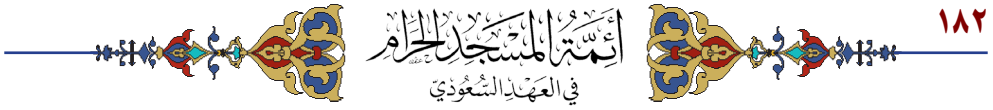 ١٨٢
أَئِمَّةُ المَسْجِدِ الحَرَامِ
في العَهْدِ السُّعُودِيّ